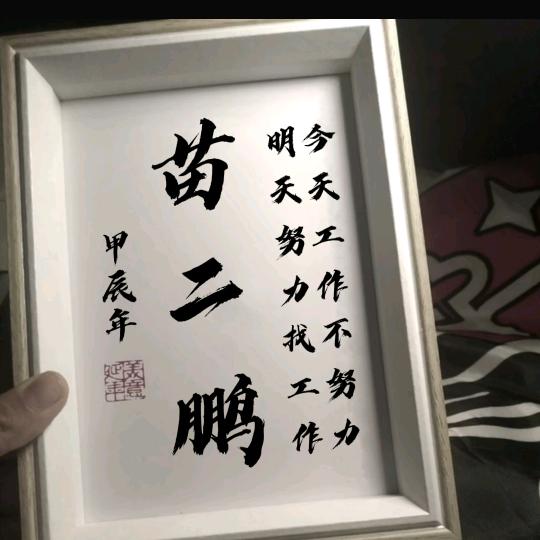 今天工作不努力
明天努力找工作
苗二鹏
甲辰年
美意延年